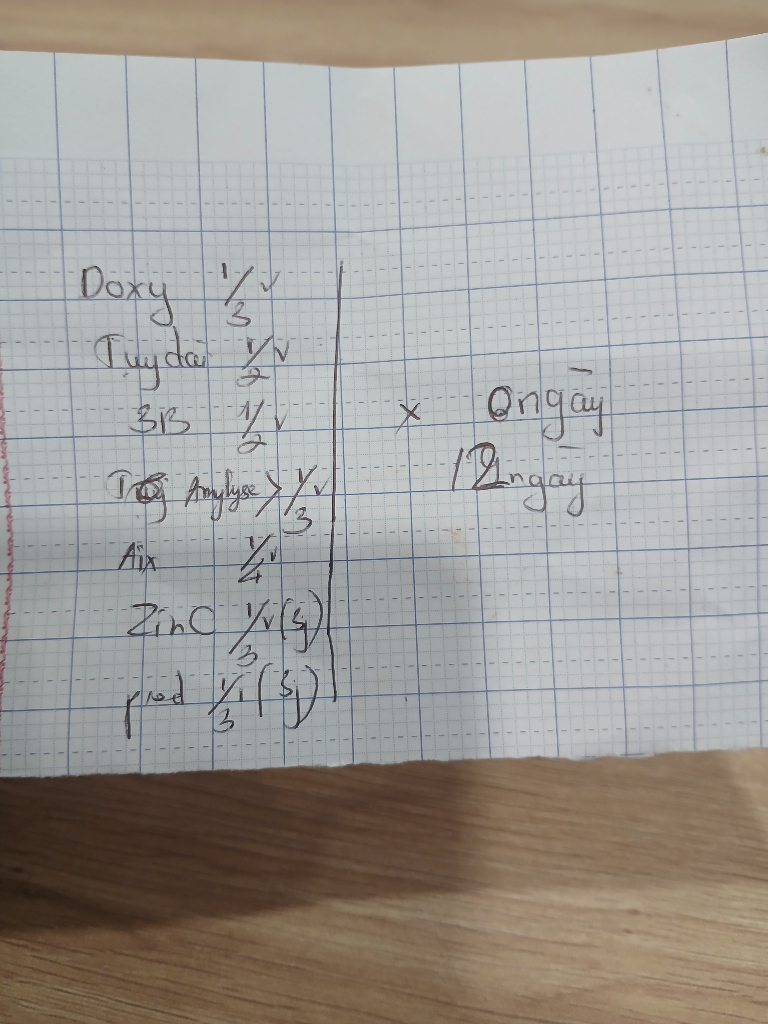 Doxy 1/3 v
Tuỵ dài 1/2 v
3B 1/2 v
Amylyse > 1/3 v
Aix 1/4 v
ZinC 1/3 v (Sg)
pred 1/3 v (Sg)
x ngày
12 ngày